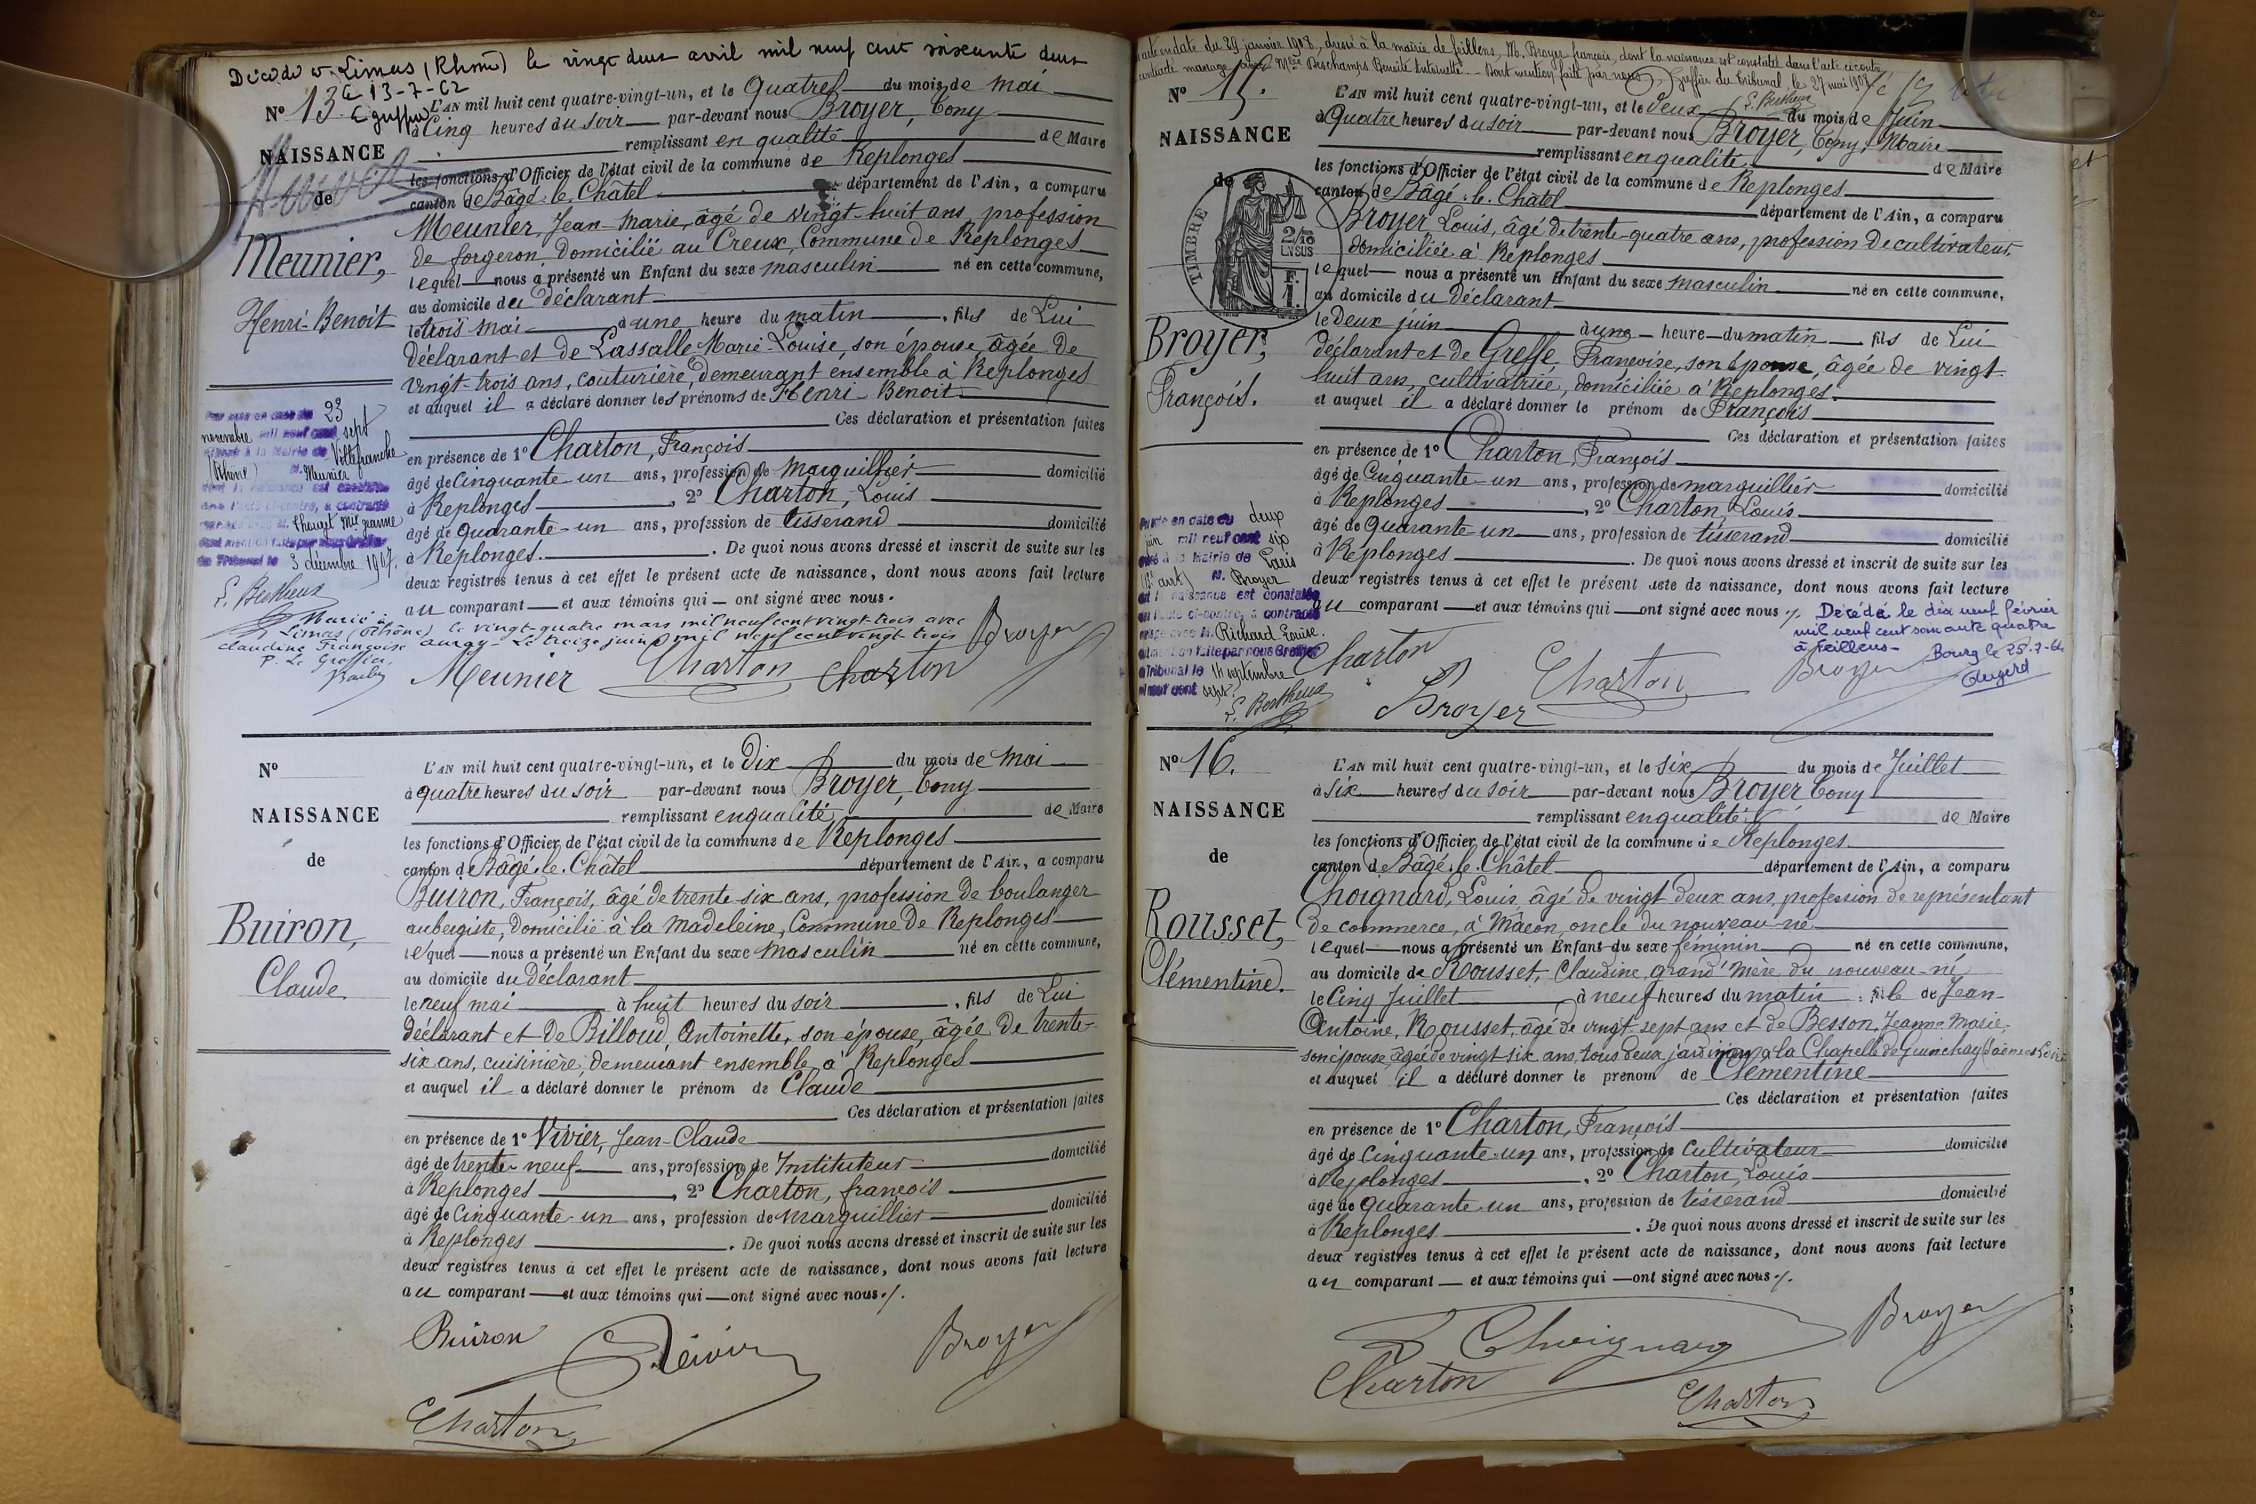 Décédé à Limas (Rhône) le vingt deux avril mil neuf cent soixante deux
13-7-62
N° 13.
NAISSANCE
de
Meunier,
Henri-Benoît
L'AN mil huit cent quatre-vingt-un, et le Quatre du mois de Mai
à Cinq heures du soir par-devant nous Broyer, Tony
remplissant en qualité de Maire
les fonctions d'Officier de l'état civil de la commune de Replonges
canton de Bâgé-le-Châtel département de l'Ain, a comparu
Meunier, Jean-Marie, âgé de vingt-huit ans, profession
de forgeron, domicilié au Creux, Commune de Replonges
lequel nous a présenté un Enfant du sexe masculin né en cette commune,
au domicile du déclarant
le trois mai à une heure du matin, fils de Lui
déclarant et de Lassalle Marie-Louise, son épouse, âgée de
vingt-trois ans, couturière, demeurant ensemble à Replonges
et auquel il a déclaré donner les prénoms de Henri Benoît
Ces déclaration et présentation faites
en présence de 1° Charton, François
âgé de Cinquante-un ans, profession de Marguillier domicilié
à Replonges, 2° Charton, Louis
âgé de Quarante-un ans, profession de tisserand domicilié
à Replonges. De quoi nous avons dressé et inscrit de suite sur les
deux registres tenus à cet effet le présent acte de naissance, dont nous avons fait lecture
au comparant et aux témoins qui ont signé avec nous.
Par acte en date du 23
novembre mil neuf cent sept
dressé à la Mairie de Villefranche
(Rhône) M. Meunier
dont la naissance est constatée
dans l'acte ci-contre, a contracté
mariage avec M. Thouyet Mie Jeanne
dont mention faite par nous Greffier
du Tribunal le 3 décembre 1907.
L. Bertheux
Marié à
Limas (Rhône) le vingt-quatre mars mil neuf cent vingt-trois avec
Claudine Françoise Auray - Le treize juin mil neuf cent vingt-trois
P. Le Greffier,
Broyer
Meunier Charton Charton
N°
NAISSANCE
de
Buiron,
Claude.
L'AN mil huit cent quatre-vingt-un, et le Dix du mois de Mai
à quatre heures du soir par-devant nous Broyer, Tony
remplissant en qualité de Maire
les fonctions d'Officier de l'état civil de la commune de Replonges
canton de Bâgé-le-Châtel département de l'Ain, a comparu
Buiron, François, âgé de trente six ans, profession de boulanger
aubergiste, domicilié à la Madeleine, Commune de Replonges
lequel nous a présenté un Enfant du sexe Masculin né en cette commune,
au domicile du déclarant
le neuf mai à huit heures du soir, fils de Lui
déclarant et de Billoud, Antoinette, son épouse, âgée de trente-
six ans, cuisinière, demeurant ensemble à Replonges
et auquel il a déclaré donner le prénom de Claude
Ces déclaration et présentation faites
en présence de 1° Vivier, Jean-Claude
âgé de trente-neuf ans, profession de Instituteur domicilié
à Replonges, 2° Charton, françois
âgé de Cinquante-un ans, profession de Marguillier domicilié
à Replonges. De quoi nous avons dressé et inscrit de suite sur les
deux registres tenus à cet effet le présent acte de naissance, dont nous avons fait lecture
au comparant et aux témoins qui ont signé avec nous./.
Buiron Vivier Broyer
Charton
acte en date du 29 janvier 1908, dressé à la mairie de feillens, M. Broyer françois, dont la naissance est constatée dans l'acte ci-contre
contracté mariage avec Mlle Deschamps Benoîte Antoinette. - Dont mention faite par nous, Greffier du Tribunal, le 27 mai 1908
L. Bertheux
N° 15.
NAISSANCE
de
TIMBRE
2/10
EN SUS
F.
1.
Broyer,
François.
L'AN mil huit cent quatre-vingt-un, et le deux du mois de Juin
à Quatre heures du soir par-devant nous Broyer, Tony, Maire
remplissant en qualité de Maire
les fonctions d'Officier de l'état civil de la commune de Replonges
canton de Bâgé-le-Châtel département de l'Ain, a comparu
Broyer, Louis, âgé de trente-quatre ans, profession de cultivateur,
domiciliée à Replonges
lequel nous a présenté un Enfant du sexe masculin né en cette commune,
au domicile du déclarant
le Deux juin à une heure du matin fils de Lui
déclarant et de Greffe, Francoise, son épouse, âgée de vingt-
huit ans, cultivatrice, domiciliée à Replonges
et auquel il a déclaré donner le prénom de François
Ces déclaration et présentation faites
en présence de 1° Charton, François
âgé de Cinquante-un ans, profession de marguillier domicilié
à Replonges, 2° Charton, Louis
âgé de quarante-un ans, profession de tisserand domicilié
à Replonges. De quoi nous avons dressé et inscrit de suite sur les
deux registres tenus à cet effet le présent acte de naissance, dont nous avons fait lecture
au comparant et aux témoins qui ont signé avec nous ./.
Par acte en date du deux
juin mil neuf cent six
dressé à la Mairie de Paris
M. Broyer
dont la naissance est constatée
en l'acte ci-contre, a contracté
mariage avec M. Richard Louise.
mention faite par nous Greffier
du Tribunal le 11 septembre
mil neuf cent sept
L. Bertheux
Décédé le dix neuf février
mil neuf cent soixante quatre
à Feillens -
Bourg le 25-2-64
Charton Charton Broyer
Broyer
N° 16.
NAISSANCE
de
Rousset,
Clémentine.
L'AN mil huit cent quatre-vingt-un, et le six du mois de Juillet
à six heures du soir par-devant nous Broyer Tony
remplissant en qualité de Maire
les fonctions d'Officier de l'état civil de la commune de Replonges
canton de Bâgé-le-Châtel département de l'Ain, a comparu
Choignard, Louis, âgé de vingt deux ans, profession de représentant
de commerce, à Mâcon, oncle du nouveau-né
lequel nous a présenté un Enfant du sexe féminin né en cette commune,
au domicile de Rousset, Claudine, grand'mère du nouveau-né
le Cinq Juillet à neuf heures du matin; fille de Jean-
Antoine, Rousset, âgé de vingt-sept ans et de Besson, Jeanne-Marie,
son épouse, âgée de vingt six ans, tous deux jardiniers à la Chapelle de Guinchay (Saône et Loire
et auquel il a déclaré donner le prénom de Clémentine
Ces déclaration et présentation faites
en présence de 1° Charton, François
âgé de Cinquante-un ans, profession de Cultivateur domicilié
à Replonges, 2° Charton, Louis
âgé de quarante-un ans, profession de tisserand domicilié
à Replonges. De quoi nous avons dressé et inscrit de suite sur les
deux registres tenus à cet effet le présent acte de naissance, dont nous avons fait lecture
au comparant et aux témoins qui ont signé avec nous ./.
Choignard Broyer
Charton Charton